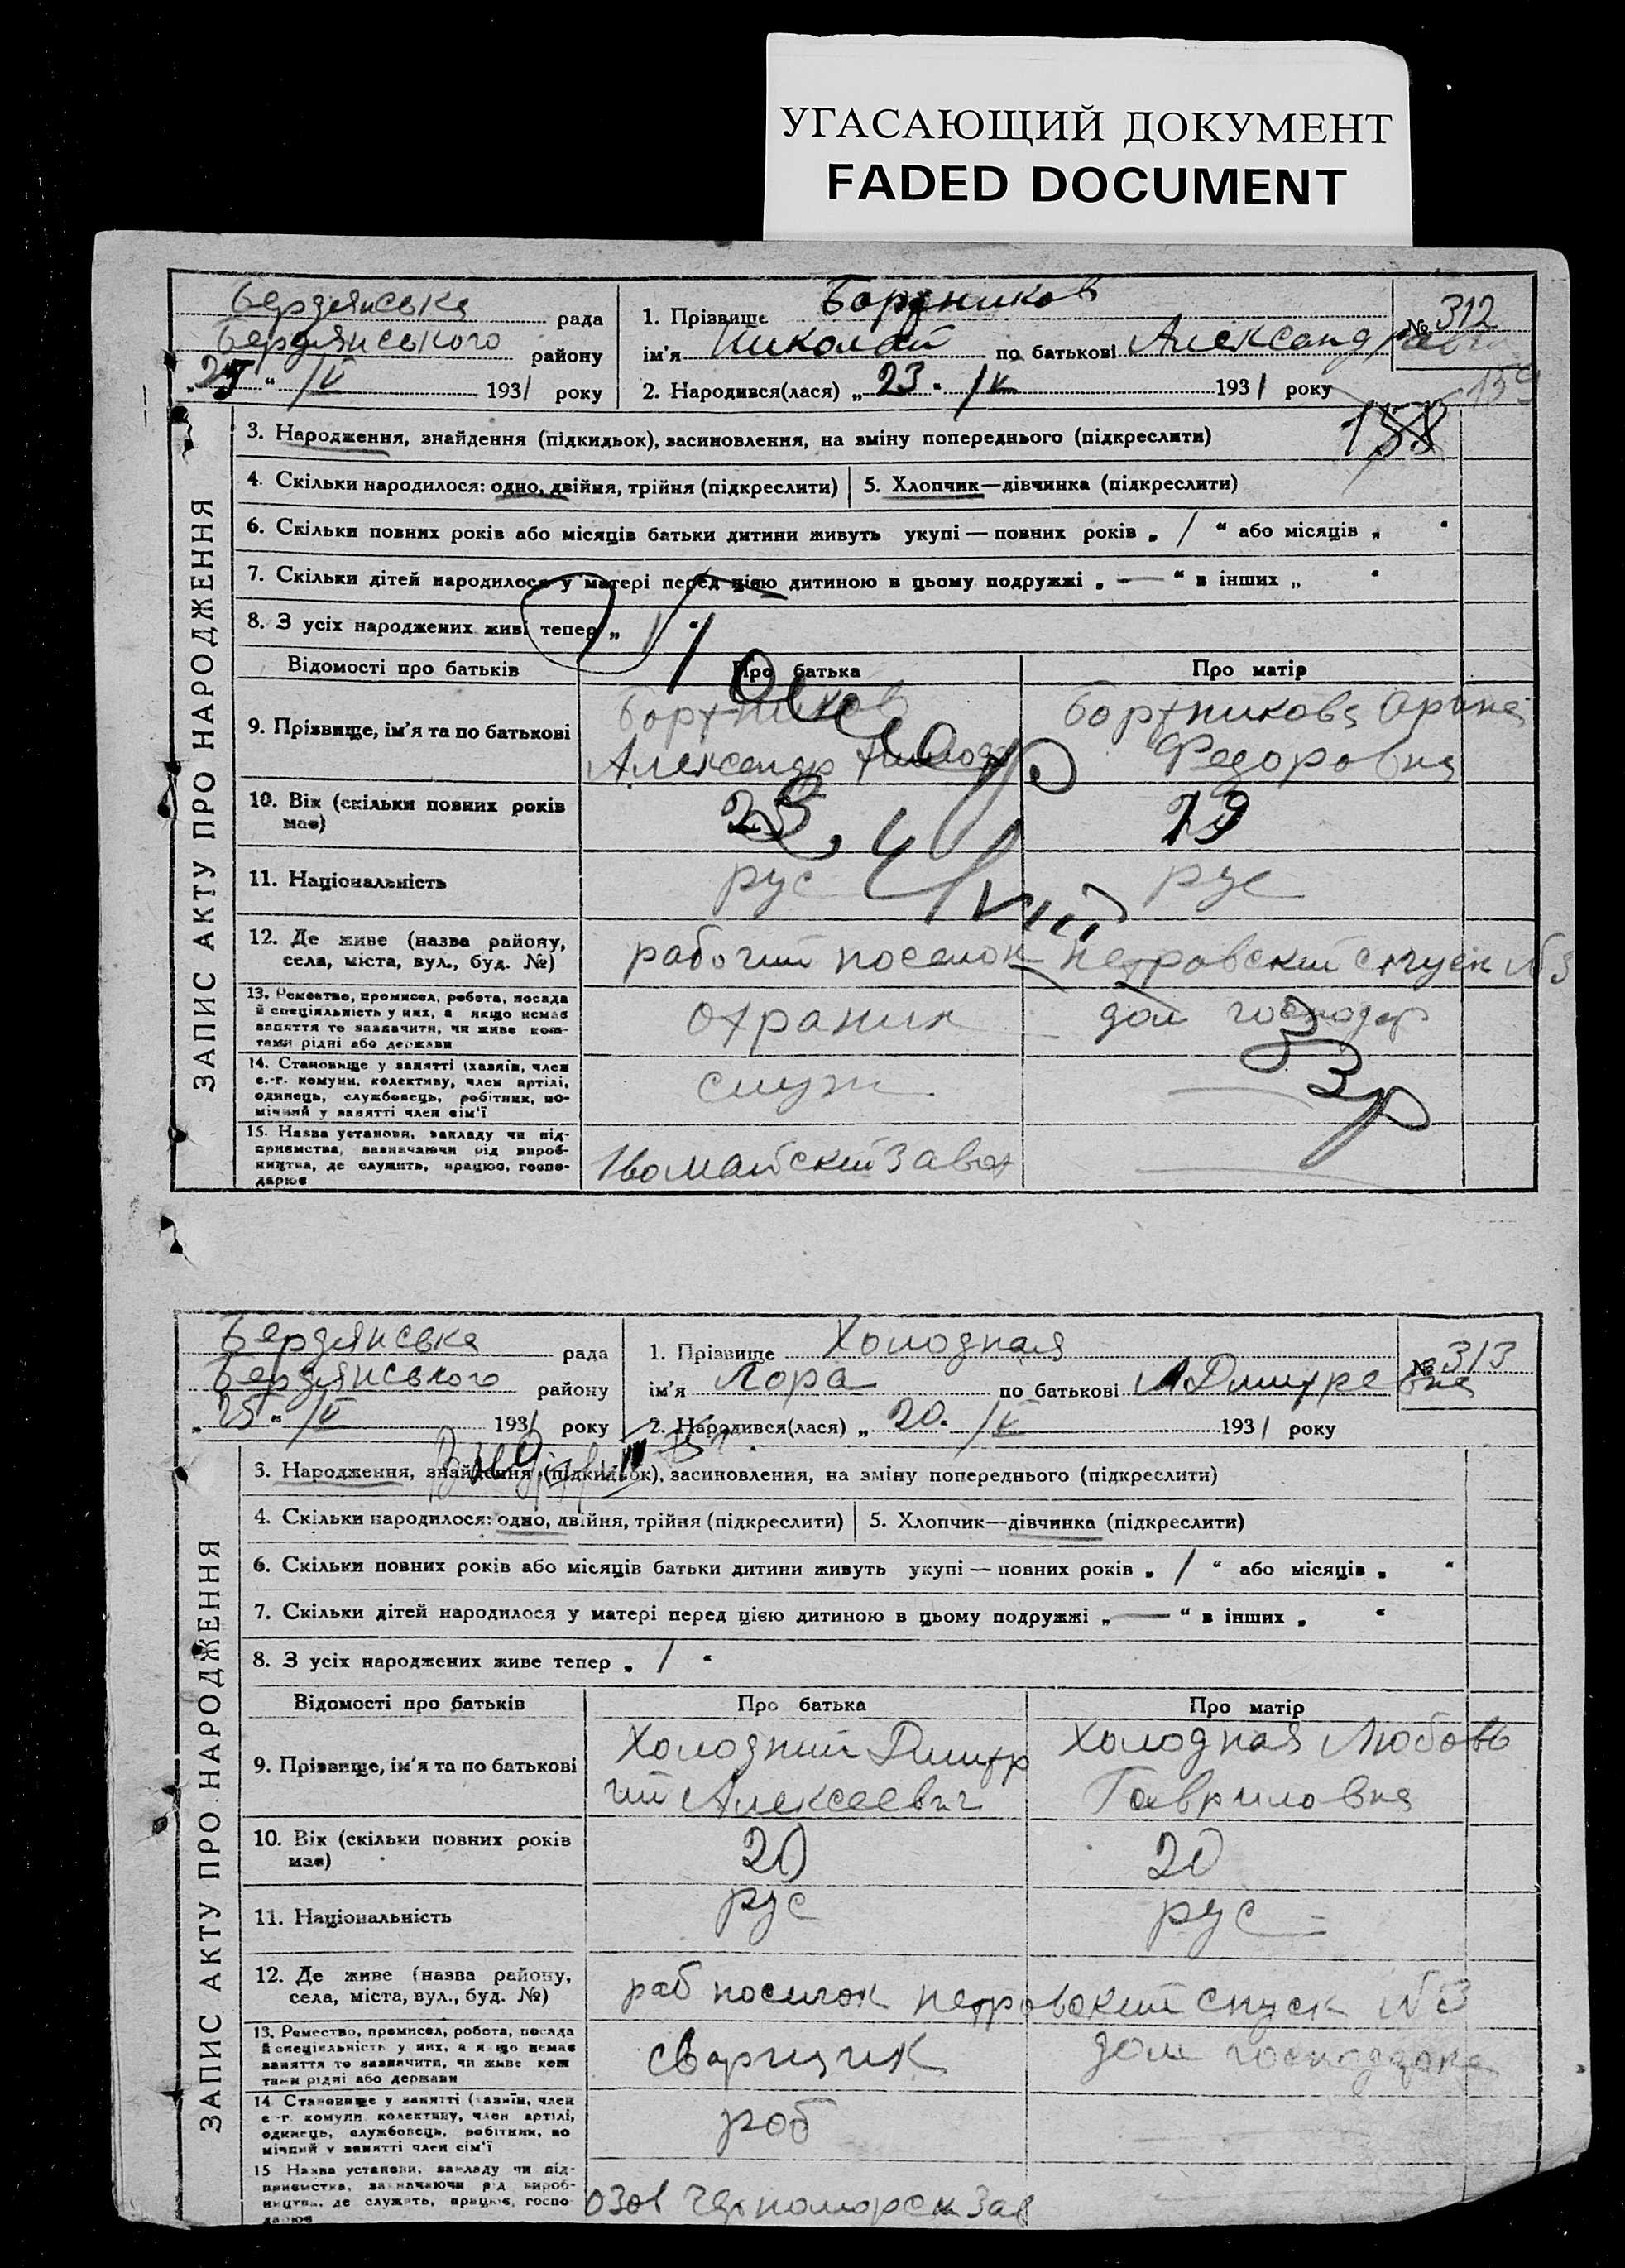 УГАСАЮЩИЙ ДОКУМЕНТ
FADED DOCUMENT
Бердянська рада
Бердянського району
„ “ IV 1931 року
1. Прізвище Бортников
ім'я Николай по батькові Александрович
2. Народився(лася) „23“ IV 1931 року
№ 312
159
158
ЗАПИС АКТУ ПРО НАРОДЖЕННЯ
3. Народження, знайдення (підкидьок), засиновлення, на зміну попереднього (підкреслити)
4. Скільки народилося: одно, двійня, трійня (підкреслити) 5. Хлопчик—дівчинка (підкреслити)
6. Скільки повних років або місяців батьки дитини живуть укупі — повних років „ 1 “ або місяців „ “
7. Скільки дітей народилося у матері перед цією дитиною в цьому подружжі „ — “ в інших „ “
8. З усіх народжених живі тепер „ 1 “
Відомості про батьків Про батька Про матір
9. Прізвище, ім'я та по батькові
Бортников
Александр
Бортникова
Федоровна
10. Вік (скільки повних років має)
23
19
11. Національність рус рус
12. Де живе (назва району, села, міста, вул., буд. №)
рабочий поселок Петровский спуск №3
13. Ремество, промисел, робота, посада
й спеціяльність у них, а якщо немає
заняття то зазначити, чи живе кош-
тами рідні або держави
охраник
дом господар
14. Становище у занятті (хазяїн, член
с.-г. комуни, колективу, член артілі,
одинець, службовець, робітник, по-
мічний у занятті член сім'ї
служ
15. Назва установи, закладу чи під-
приємства, зазначаючи рід вироб-
ництва, де служить, працює, госпо-
дарює
1во майский завод
Бердянська рада
Бердянського району
„25“ IV 1931 року
1. Прізвище Холодная
ім'я Лора по батькові Дмитревна
2. Народився(лася) „20“ IV 1931 року
№ 313
ЗАПИС АКТУ ПРО НАРОДЖЕННЯ
3. Народження, знайдення (підкидьок), засиновлення, на зміну попереднього (підкреслити)
4. Скільки народилося: одно, двійня, трійня (підкреслити) 5. Хлопчик—дівчинка (підкреслити)
6. Скільки повних років або місяців батьки дитини живуть укупі — повних років „ 1 “ або місяців „ “
7. Скільки дітей народилося у матері перед цією дитиною в цьому подружжі „ — “ в інших „ “
8. З усіх народжених живе тепер „ 1 “
Відомості про батьків Про батька Про матір
9. Прізвище, ім'я та по батькові
Холодний Дмитр
ий Алексеевич
Холодная Любовь
Гавриловна
10. Вік (скільки повних років має)
20
20
11. Національність рус рус
12. Де живе (назва району, села, міста, вул., буд. №)
раб поселок Петровский спуск №3
13. Ремество, промисел, робота, посада
й спеціяльність у них, а якщо немає
заняття то зазначити, чи живе кош
тами рідні або держави
сварщик
дом господарка
14 Становище у занятті (хазяїн, член
с-г. комуни, колективу, член артілі,
одинець, службовець, робітник, по
мічний у занятті член сім'ї
роб
15 Назва установи, закладу чи під-
приємства, зазначаючи рід вироб-
ництва, де служить, працює, госпо
дарює
Озов Черноморск зав